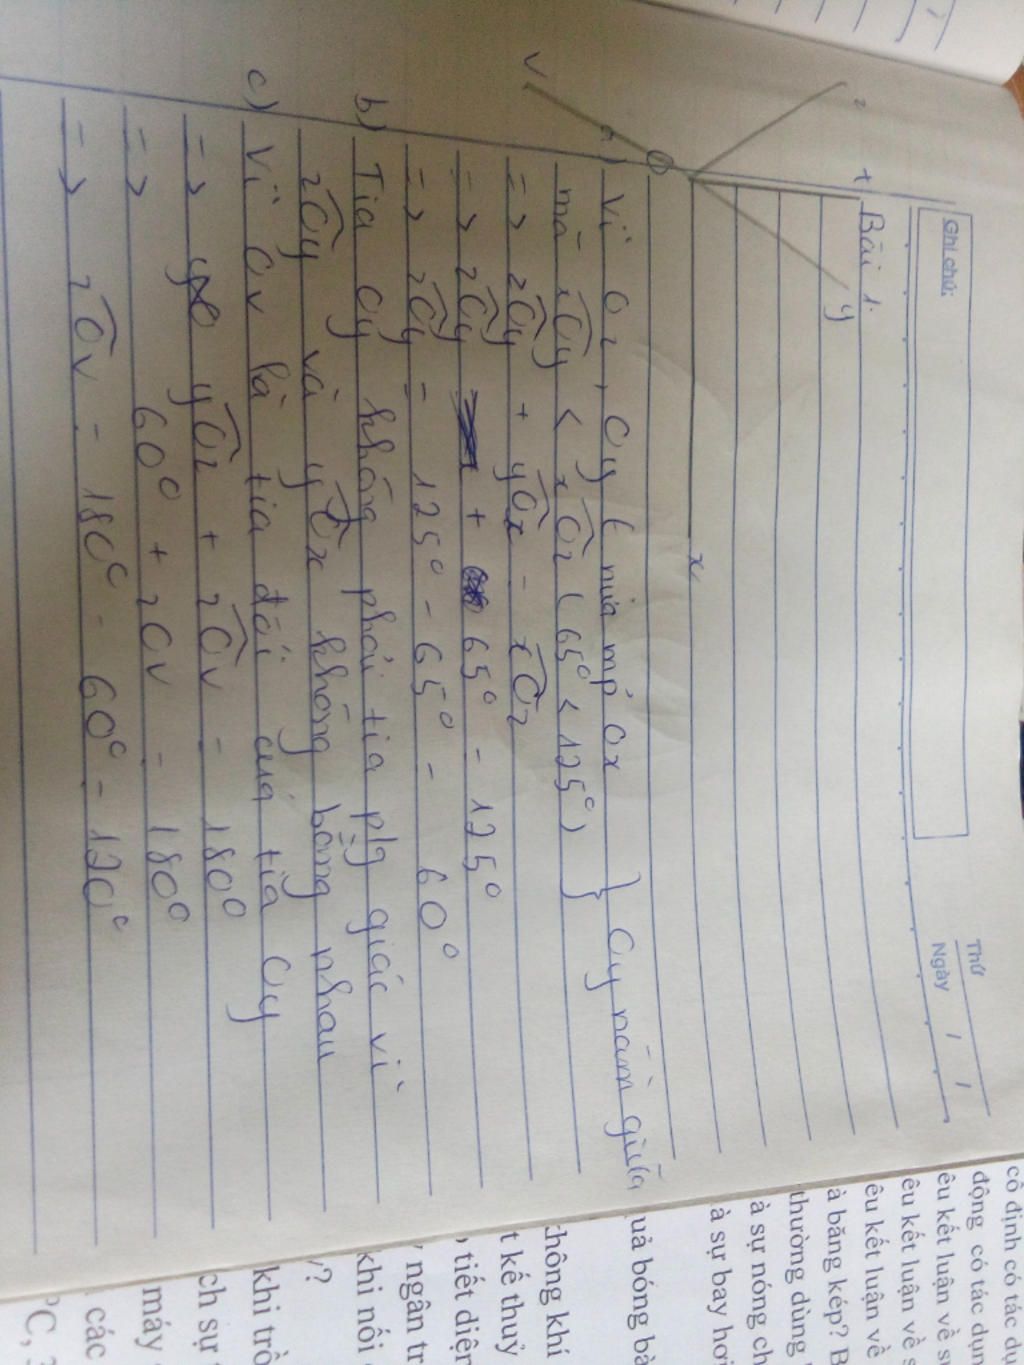 Ghi chú:
Thứ
Ngày / /
Bài 1:
z
t
y
x
v
a) Vì Oz, Oy ∈ nửa mp Ox } Oy nằm giữa
mà xÔy < xÔz (65° < 125°) }
=> zÔy + yÔx = xÔz
=> zÔy + 65° = 125°
=> zÔy = 125° - 65° = 60°
b) Tia Oy không phải tia p/g giác vì
zÔy và yÔx không bằng nhau
c) Vì Ov là tia đối của tia Oy
=> yÔz + zÔv = 180°
=> 60° + zOv = 180°
=> zÔv = 180° - 60° = 120°
cố định có tác dụ
động có tác dụn
êu kết luận về sụ
êu kết luận về s
êu kết luận về
à băng kép? B
thường dùng
à sự nóng ch
à sự bay hơi
uả bóng bà
không khí
t kế thuỷ
tiết diện
ngân tr
khi nối
y?
khi trồ
ch sự
máy
các
°C, 3